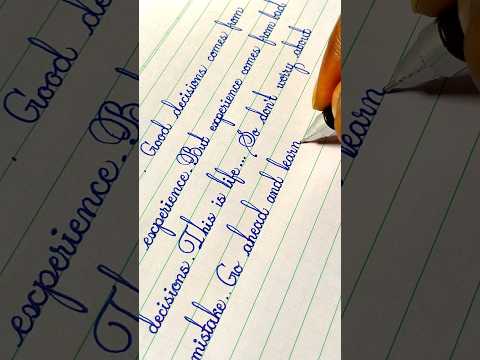 Good decisions comes from
experience. But experience comes from bad
decisions. This is life... So don't worry about
mistake.. Go ahead and learn